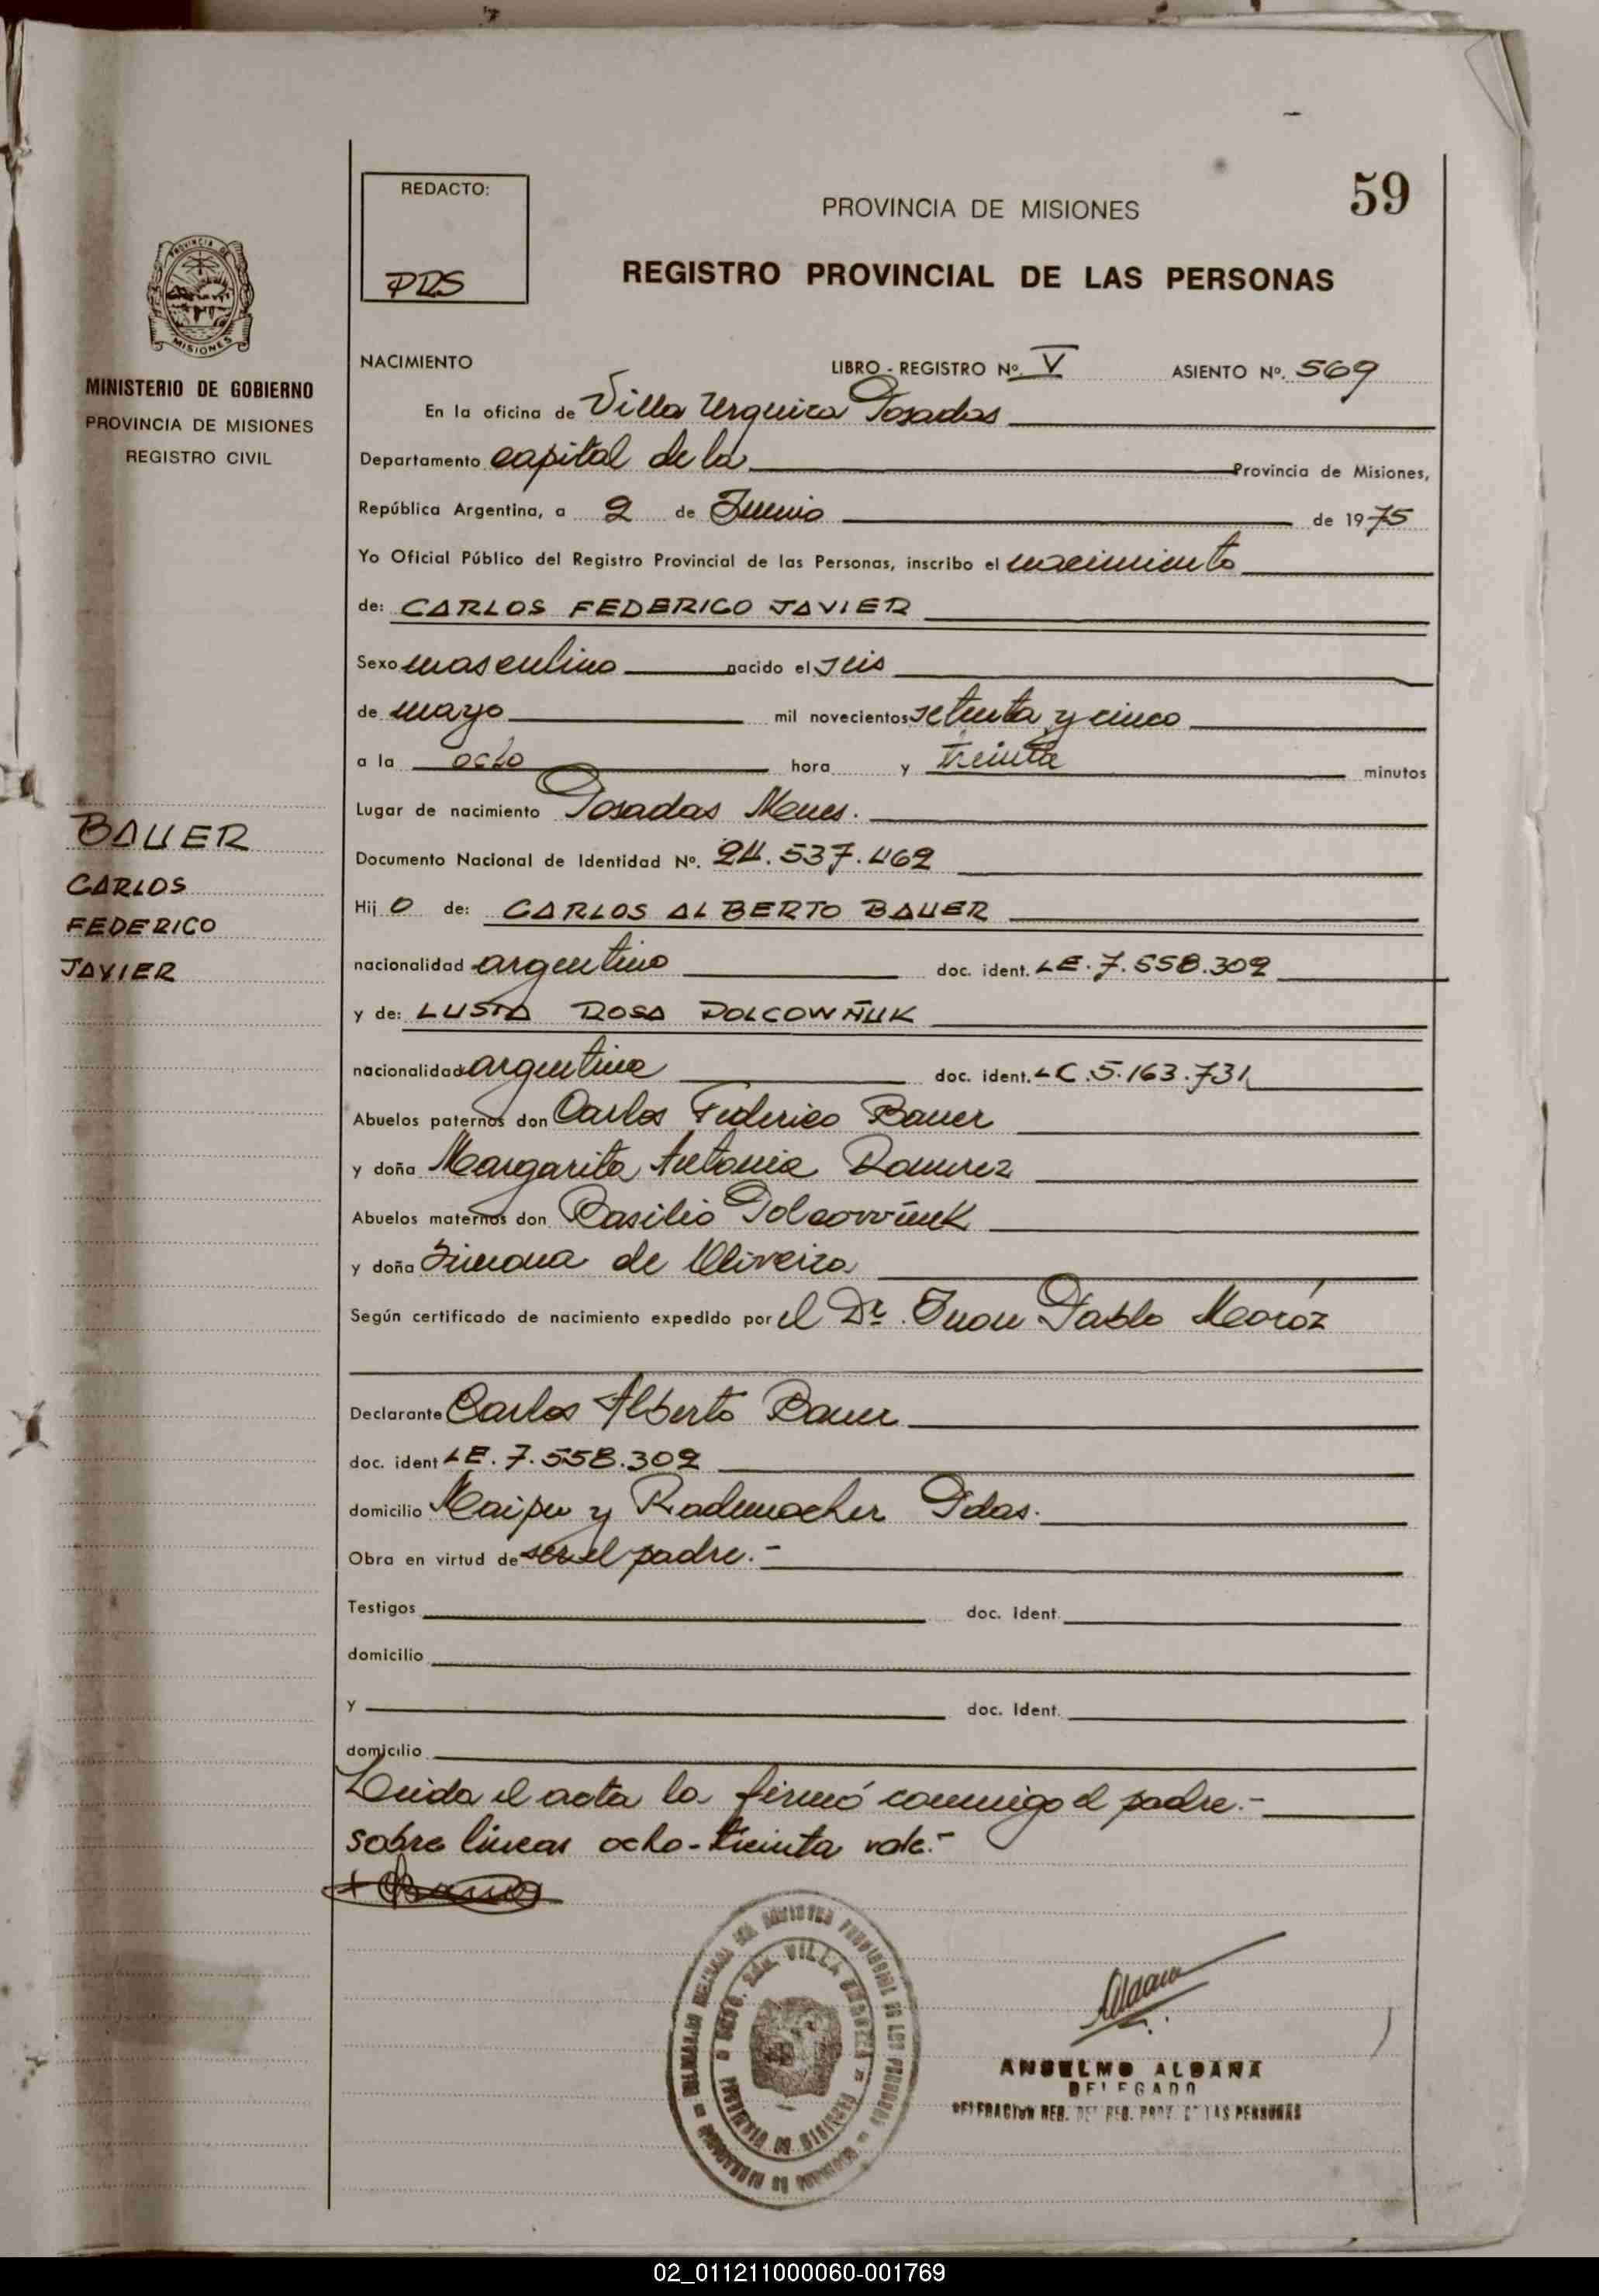 59
REDACTO:
PROVINCIA DE MISIONES
REGISTRO PROVINCIAL DE LAS PERSONAS
PROVINCIA DE
MISIONES
MINISTERIO DE GOBIERNO
PROVINCIA DE MISIONES
REGISTRO CIVIL
NACIMIENTO LIBRO - REGISTRO Nº. V ASIENTO Nº. 569
En la oficina de Villa Urquiza Posadas
Departamento capital de la Provincia de Misiones,
República Argentina, a 2 de Junio de 1975
Yo Oficial Público del Registro Provincial de las Personas, inscribo el nacimiento
de: CARLOS FEDERICO JAVIER
Sexo masculino nacido el seis
de mayo mil novecientos setenta y cinco
a la ocho hora y treinta minutos
Lugar de nacimiento Posadas Mnes.
BAUER
CARLOS
FEDERICO
JAVIER
Documento Nacional de Identidad Nº. 24.537.462
Hij o de: CARLOS ALBERTO BAUER
nacionalidad argentino doc. ident. LE. 7.558.302
y de: ROSA POLCOWÑUK
nacionalidad argentina doc. ident. LC. 5.163.731
Abuelos paternos don Carlos Federico Bauer
y doña Margarita Antonia Ramirez
Abuelos maternos don Basilio Polcowñuk
y doña Simona de Oliveira
Según certificado de nacimiento expedido por el Dr. Juan Pablo
Declarante Carlos Alberto Bauer
doc. ident LE. 7.558.302
domicilio Maipu y Rademacher Pdas.
Obra en virtud de ser el padre.-
Testigos doc. Ident.
domicilio
y doc. Ident.
domicilio
Leida el acta la firmó conmigo el padre.-
sobre lineas ocho-treinta vale.-
ANSELMO ALDANA
DELEGADO
DELEGACION REG. DEL REG. PROV. DE LAS PERSONAS
VILLA URQUIZA
PROVINCIA DE MISIONES
02_011211000060-001769